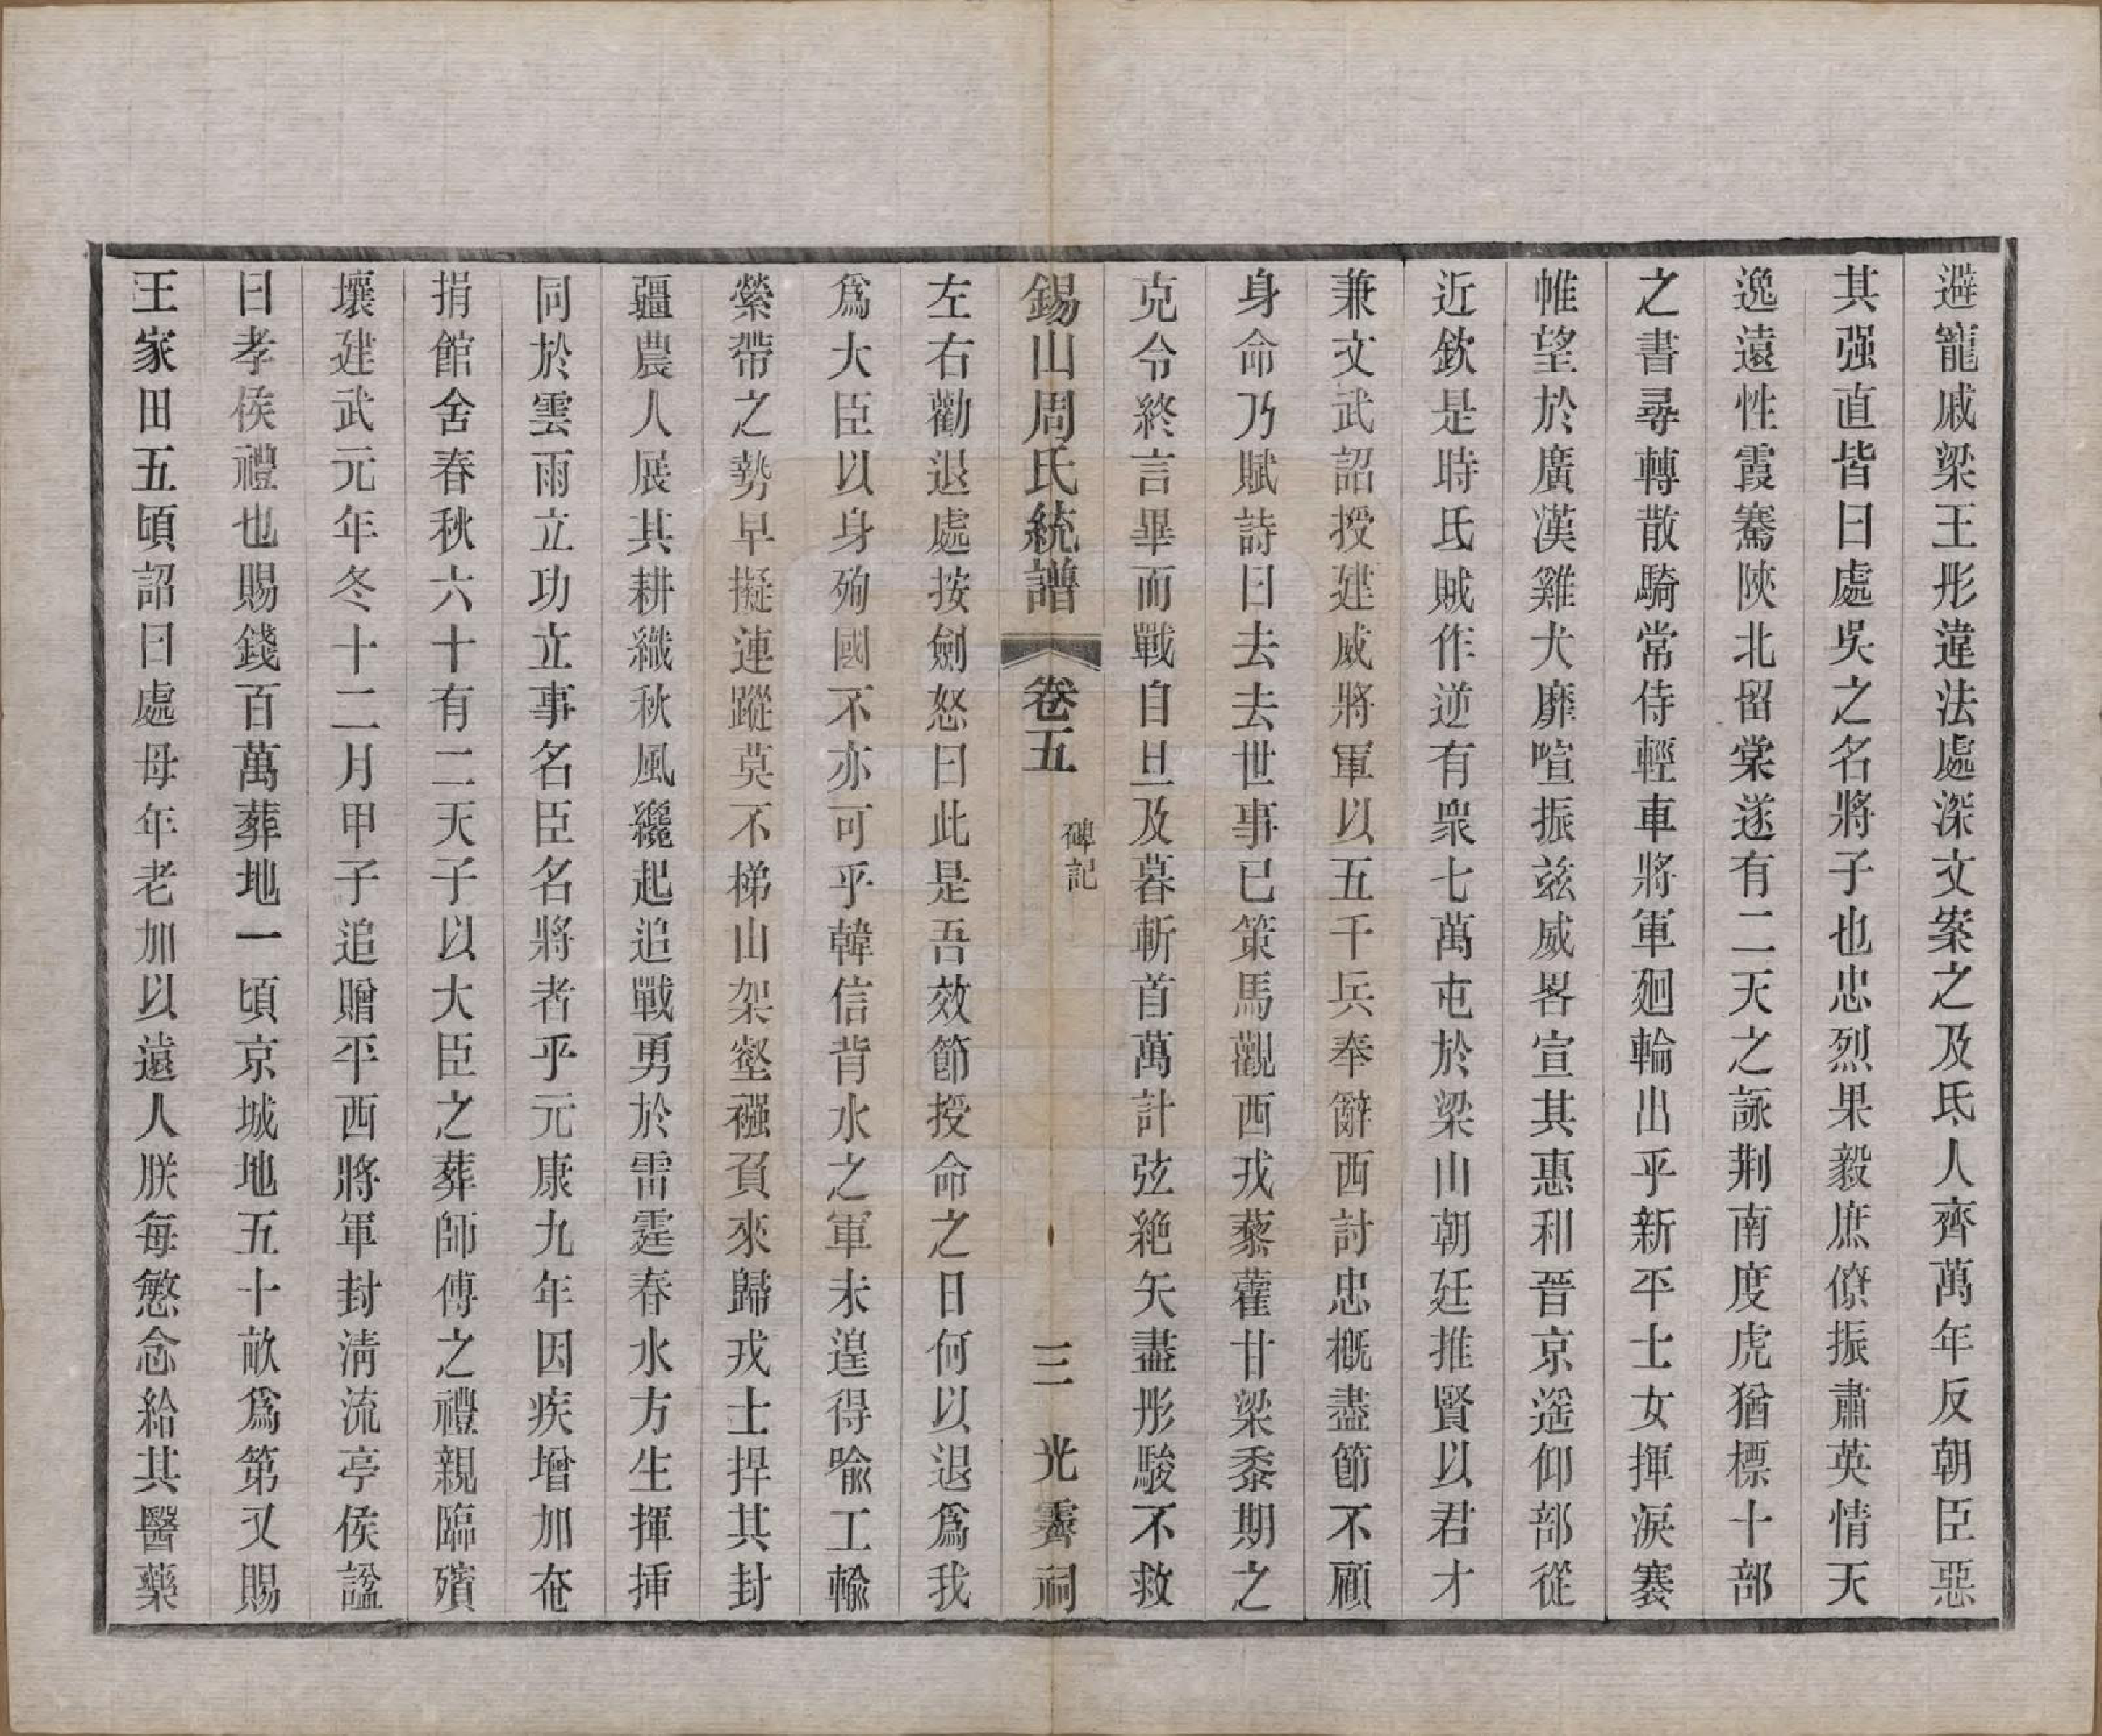 避寵戚梁王肜違法處深文案之及氐人齊萬年反朝臣惡
其强直皆曰處吳之名將子也忠烈果毅庶僚振肅英情天
逸遠性霞騫陝北留棠遂有二天之詠荆南度虎猶標十部
之書尋轉散騎常侍輕車將軍廻輪出乎新平士女揮淚褰
帷望於廣漢雞犬靡喧振兹威畧宣其惠和晉京遥仰部從
近欽是時氐賊作逆有衆七萬屯於梁山朝廷推賢以君才
兼文武詔授建威將軍以五千兵奉辭西討忠概盡節不顧
身命乃賦詩曰去去世事已策馬觀西戎藜藿甘梁黍期之
克令終言畢而戰自旦及暮斬首萬計弦絶矢盡肜駿不救
錫山周氏統譜 卷五 碑記 三 光霽祠
左右勸退處按劍怒曰此是吾效節授命之日何以退爲我
爲大臣以身殉國不亦可乎韓信背水之軍未遑得喻工輸
縈帶之勢早擬連蹤莫不梯山架壑襁負來歸戎士捍其封
疆農人展其耕織秋風纔起追戰勇於雷霆春水方生揮挿
同於雲雨立功立事名臣名將者乎元康九年因疾增加奄
捐館舍春秋六十有二天子以大臣之葬師傅之禮親臨殯
壤建武元年冬十二月甲子追贈平西將軍封淸流亭侯諡
曰孝侯禮也賜錢百萬葬地一頃京城地五十畝爲第又賜
王家田五頃詔曰處母年老加以遠人朕每慜念給其醫藥